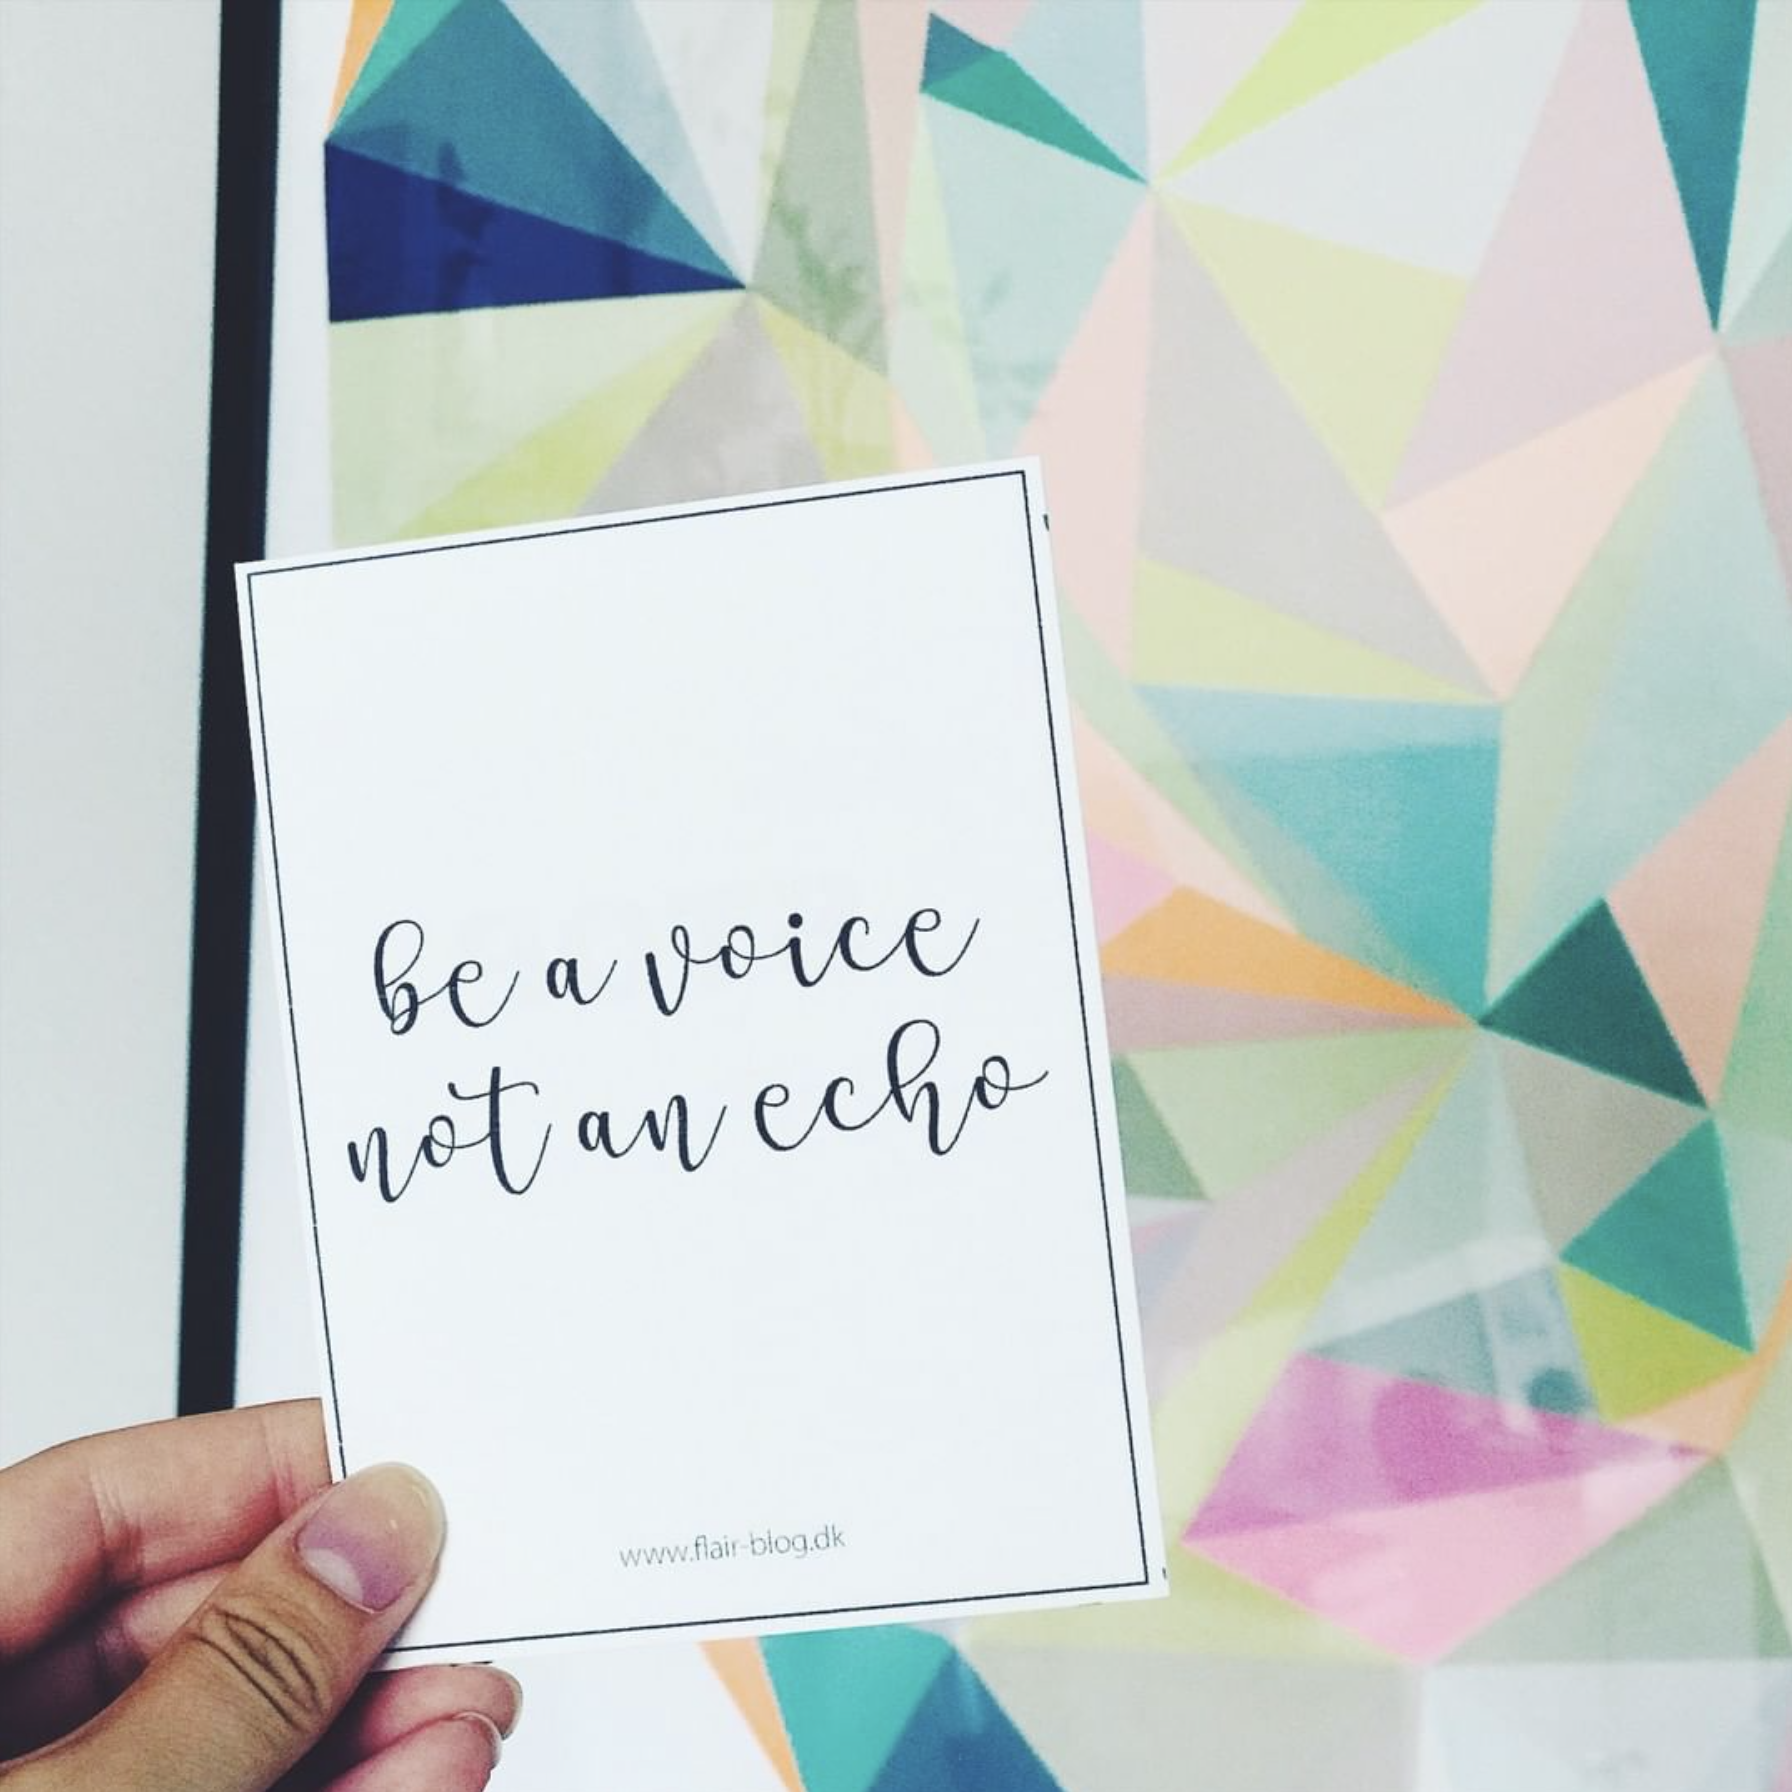 be a voice
not an echo
www.flair-blog.dk